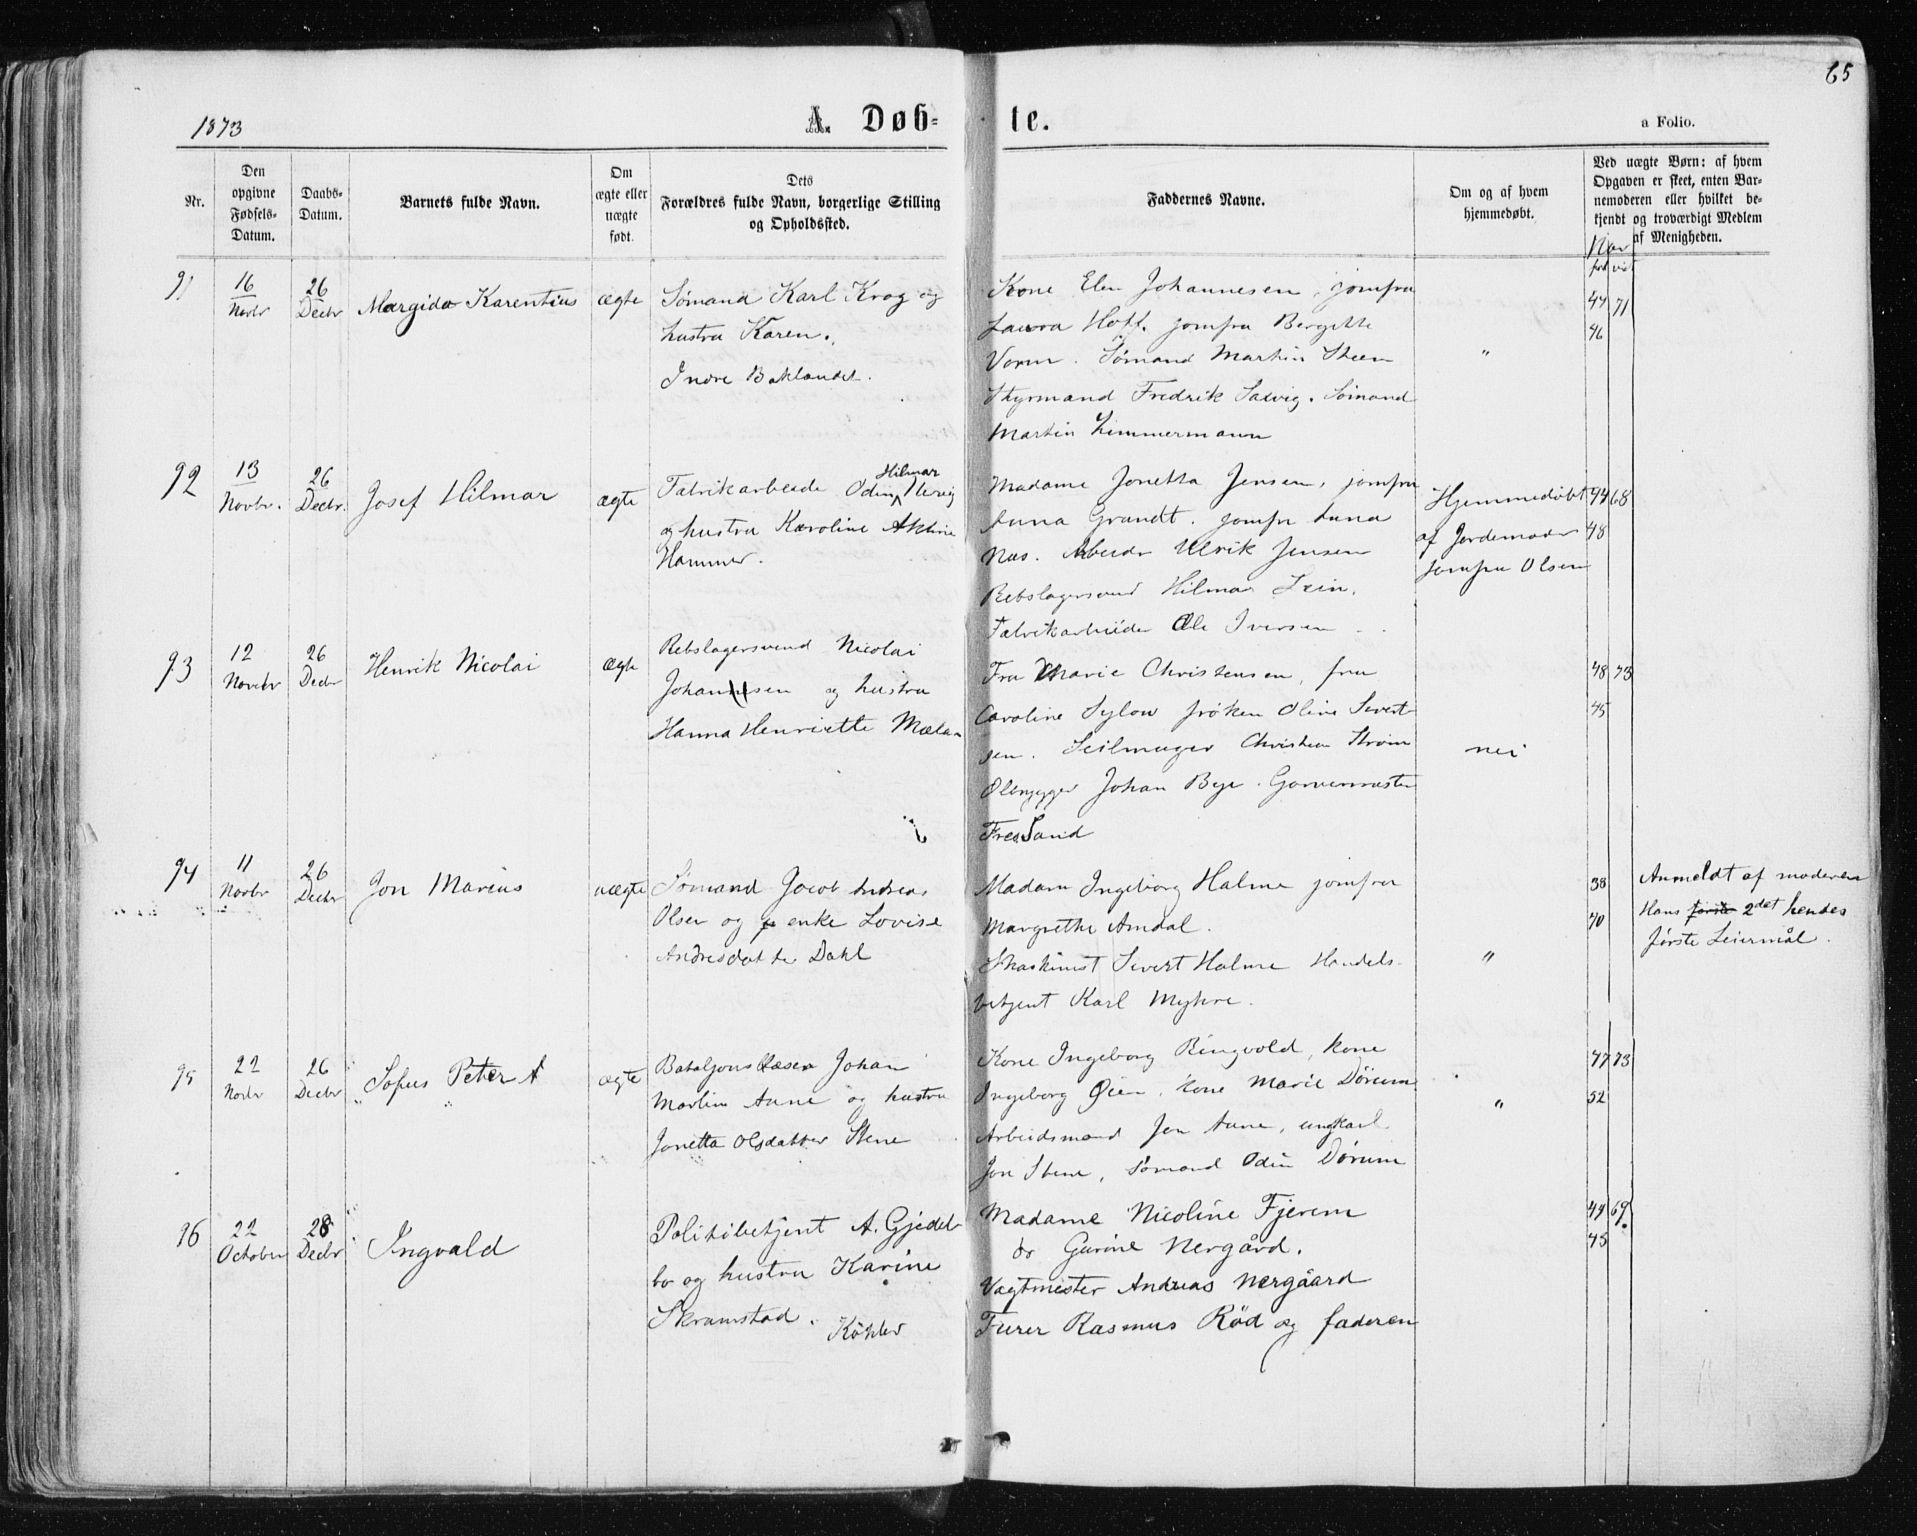 65
1873
A. Døb-
te.
a Folio.
Nr.
Den opgivne Fødsels-Datum.
Daabs-Datum.
Barnets fulde Navn.
Om ægte eller uægte født.
Dets Forældres fulde Navn, borgerlige Stilling og Opholdssted.
Faddernes Navne.
Om og af hvem hjemmedøbt.
Ved uægte Børn: af hvem Opgaven er skeet, enten Barnemoderen eller hvilket bekjendt og troværdigt Medlem af Menigheden.
91
16 Novbr
26 Decbr
Margido Karentius
ægte
Sømand Karl Krog og
hustru Karen.
Indre Baklandet.
Kone Elen Johannesen, jomfru
Laura Hoff. jomfru Bergitte
Vorm. Sømand Martin Steen
Styrmand Fredrik Salvig. Sømand
Martin Zimmermann
"
47 71
46
92
13 Novbr.
26 Decbr.
Josef Hilmar
ægte
Hilmar
Fabrikarbeide Odin
og hustru Karoline
Hammer.
Madame Jonetta Jensen, jomfru
Anna Grandt. jomfr Anna
Næs. Arbeidr Ulrik Jensen
Rebslagersvend Hilmar
Fabrikarbeider Ole Iversen
Hjemmedøbt
af Jordemoder
Jomfru Olsen
44 68
48
93
12 Novebr
26 Decbr
Henrik Nicolai
ægte
Rebslagersvend Nicolai
Johannesen og hustru
Hanna Henriette
Fru Marie Christensen, fru
Caroline Sylow frøken Oline Sivert
sen. Seilmager Christian Strøm
Ølbrygger Johan Bye. Garvermester
Sand
nei
48 73
45
94
11 Novbr
26 Decbr
Jon Marius
uægte
Sømand Jacob Andreas
Olsen og enke Lovise
Andresdatter Dahl
Madam Ingeborg Halme jomfru
Margrethe Amdal.
Maskinist Sivert Halme Handels-
betjent Karl Myhre.
"
38
70
Anmeldt af moderen
Hans første 2det hendes
første Leiermål.
95
22 Novbr
26 Decbr
Sofus Peter A
ægte
Bataljons Johan
Martin Aune og hustru
Jonetta Olsdatter Stene
Kone Ingeborg Ringvold, kone
Ingeborg Øien, kone Marie Dørum
Arbeidsmand Jon Aune, ungkarl
Jon Stene, Sømand Odin Dørum
"
47 73
52
96
22 October
28 Decbr
Ingvald
Politibetjent A. Gjedeb
bo og hustru Karine
Skramstad.
Köhler
Madame Nicoline Fjerem
do Gurine Nergård.
Vagtmester Andreas Nergaard
Furer Rasmus Röd og faderen
49 69.
45